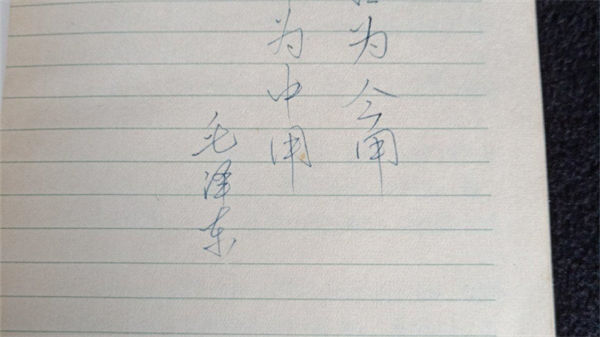 为今用
为中用
毛泽东